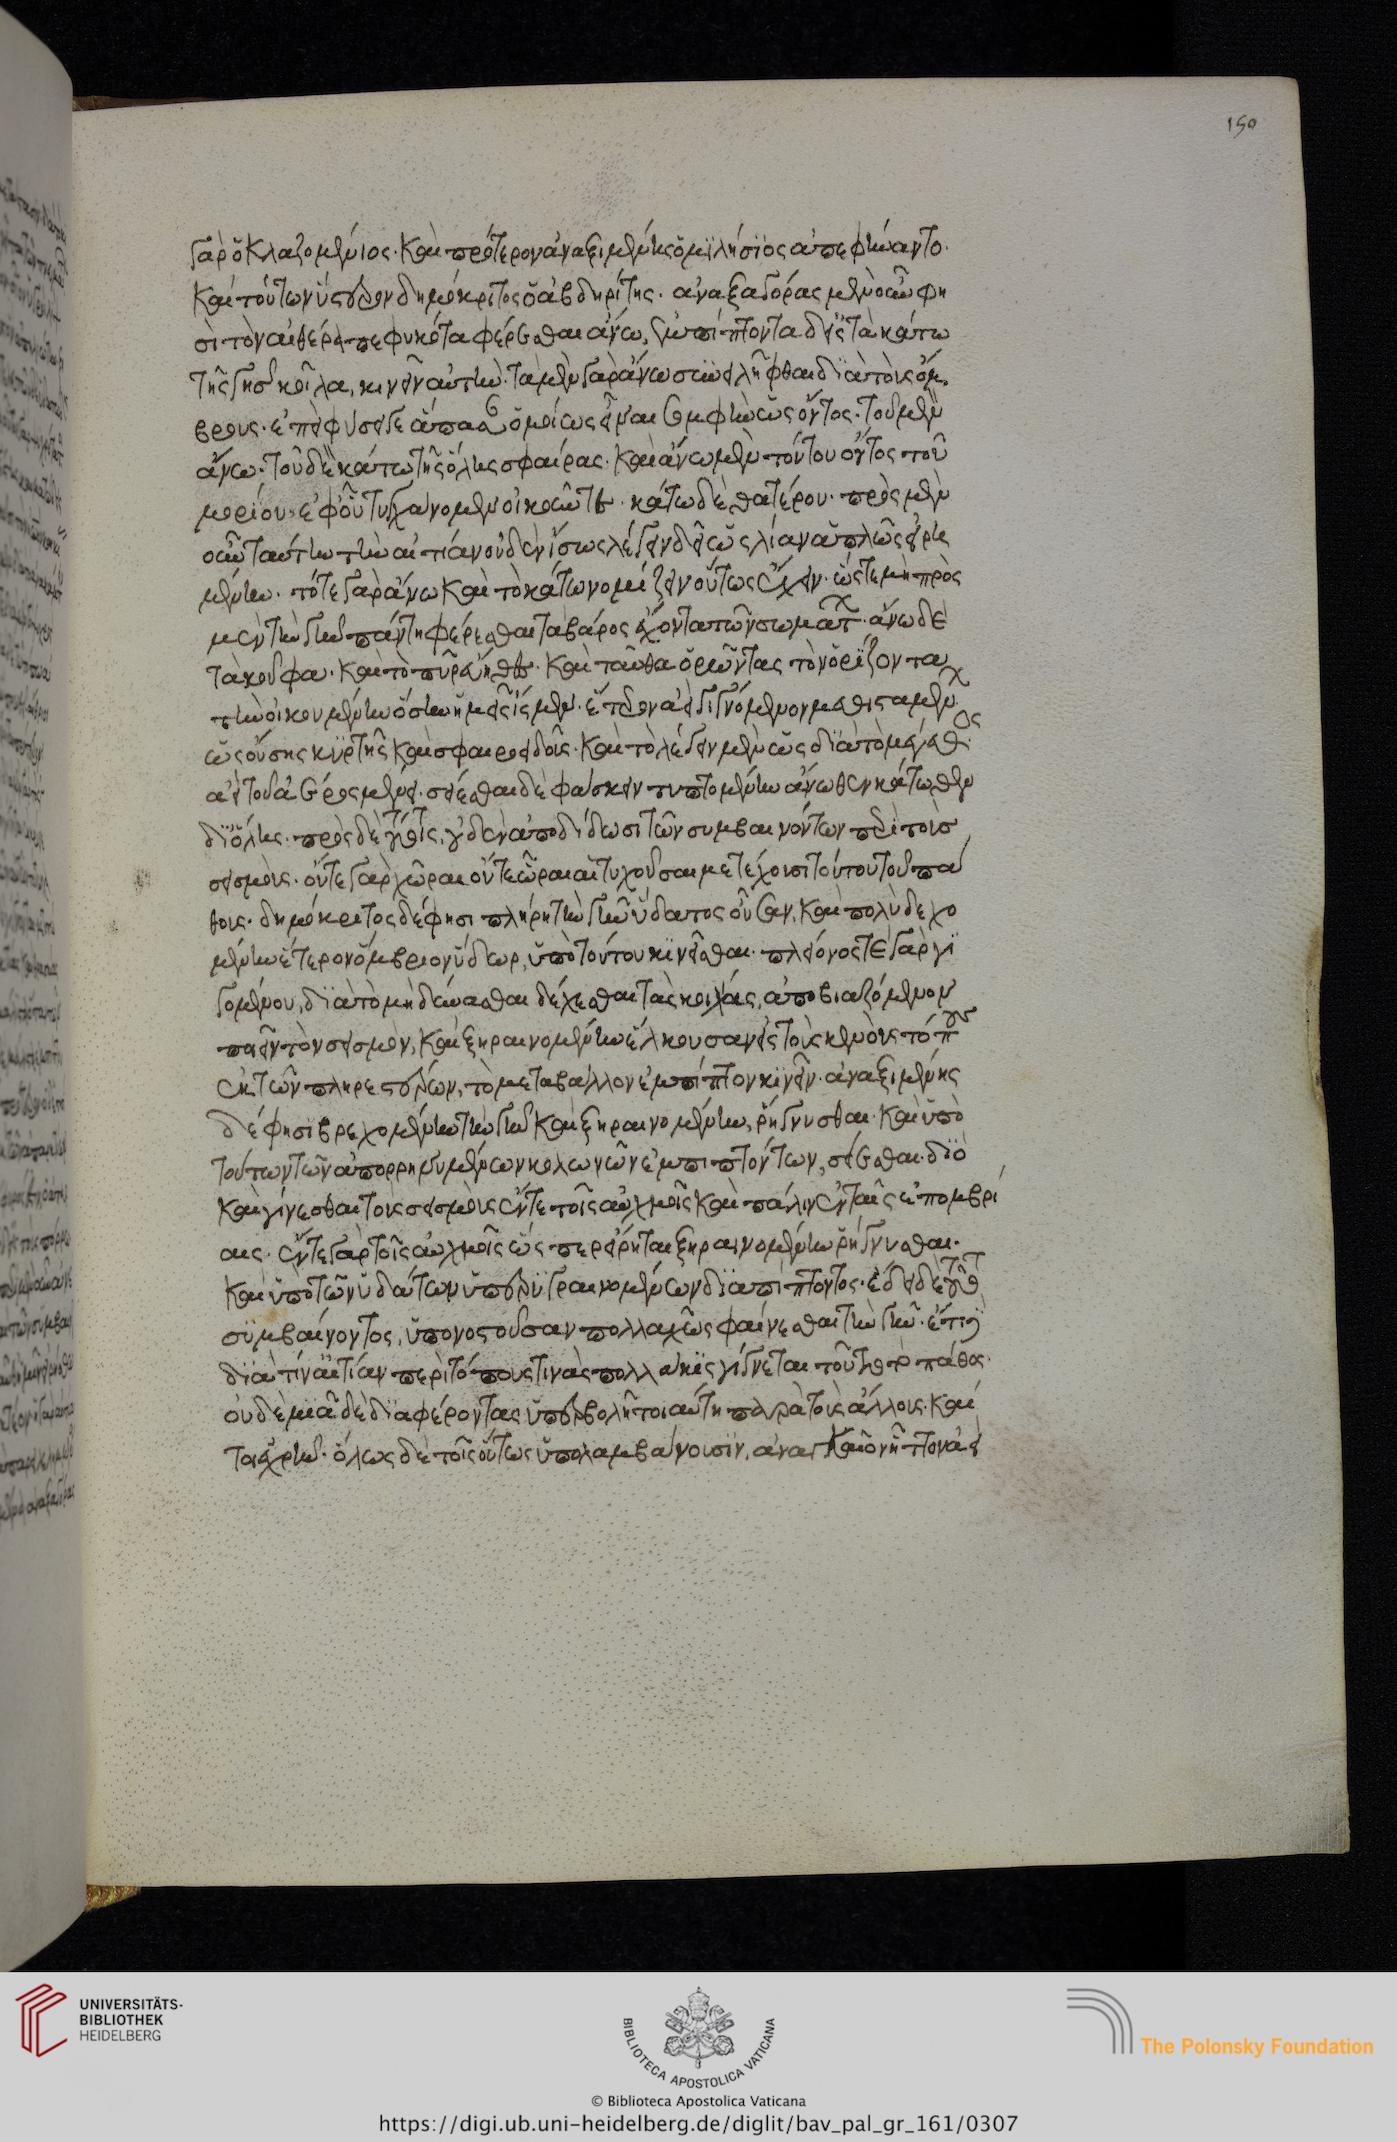 γὰρ ὁ κλαζομένιος· καὶ πρότερον ἀναξιμένης ὁ μϊλήσϊος ἀπεφήναντο·
καὶ τούτων ὕστερον δημόκριτος ὁ ἀβδηρίτης· ἀναξαγόρας μὲν οὖν φη
σὶ τὸν αἰθέρα πεφυκότα φέρεσθαι ἄνω, ἐμπίπτοντα δ' εἰς τὰ κάτω
τῆς γῆς κοῖλα, κινεῖν αὐτήν· τὰ μὲν γὰρ ἄνω συνειλῆφθαι δϊὰ τοὺς ὄμ,
βρους· ἐπεὶ φύσει γε ἅπασαν ὁμοίως εἶναι σομφὴν ὡς ὄντος· τοῦ μὲν
ἄνω· τοῦ δὲ κάτω τῆς ὅλης σφαίρας· καὶ ἄνω μὲν τούτου ὄντος τοῦ
μορίου· ἐφ' οὗ τυγχάνομεν οἰκοῦντες· κάτω δὲ θατέρου· πρὸς μὲν
οὖν ταύτην τὴν αἰτίαν οὐδὲν ἴσως λέγειν δεῖ ὡς λίαν ἁπλῶς εἰρη
μένην· τό τε γὰρ ἄνω καὶ τὸ κάτω νομίζειν οὕτως ἔχειν· ὥστε μὴ πρὸς
μὲν τὴν γῆν πάντη φέρεσθαι τὰ βάρος ἔχοντα τῶν σωμάτων· ἄνω δὲ
τὰ κοῦφα· καὶ τὸ πῦρ εὔηθες· καὶ ταῦθ' ὁρῶντας τὸν ὁρίζοντα
τὴν οἰκουμένην ὅσην ἡμεῖς ἴσμεν· ἕτερον ἀεὶ γιγνόμενον μεθισταμένων
ὡς οὔσης κϋρτῆς καὶ σφαιροειδοῦς· καὶ τὸ λέγειν μὲν ὡς δϊὰ τὸ μέγεθος
ἀεὶ τοῦ ἀέρος μένει· σείεσθαι δὲ φάσκειν τυπτομένην ἄνωθεν κάτωθεν
δι' ὅλης· πρὸς δὲ τούτοις, οὐδὲν ἀποδίδωσι τῶν συμβαινόντων περὶ τοὺς
σεισμούς· οὔτε γὰρ χῶραι οὔτε ὧραι αἱ τυχοῦσαι μετέχουσι τούτου τοῦ πά
θους· δημόκριτος δέ φησι πλήρη τὴν γῆν ὕδατος οὖσαν, καὶ πολὺ δεχο
μένην ἕτερον ὄμβριον ὕδωρ, ὑπὸ τούτου κϊνεῖσθαι· πλείονός τε γὰρ γϊ
γομένου, δϊὰ τὸ μὴ δύνασθαι δέχεσθαι τὰς κοιλίας, ἀποβιαζόμενον
ποιεῖν τὸν σεισμόν, καὶ ξηραινομένην ἕλκουσαν εἰς τοὺς κενοὺς τόπους
ἐκ τῶν πληρεστέρων, τὸ μεταβάλλον ἐμπίπτον κϊνεῖν· ἀναξιμένης
δέ φησϊ βρεχομένην τὴν γῆν καὶ ξηραινομένην, ῥήγνυσθαι· καὶ ὑπὸ
τούτων τῶν ἀπορρηγνυμένων κολωνῶν ἐμπιπτόντων, σείεσθαι· δϊὸ
καὶ γίνεσθαι τοὺς σεισμοὺς ἔν τε τοῖς αὐχμοῖς καὶ πάλιν ἐν ταῖς ἐπομβρί
αις· ἔν τε γὰρ τοῖς αὐχμοῖς ὥς περ εἴρηται ξηραινομένην ῥήγνυσθαι·
καὶ ὑπὸ τῶν ὑδάτων ὑπερϋγραινομένων δϊαπίπτοντος· ἔδει δὲ τούτου
σϋμβαίνοντος, ὑπονοστοῦσαν πολλαχῶς φαίνεσθαι τὴν γῆν· ἔτι
δϊὰ τίν' αἰτίαν περὶ τόπους τινὰς πολλάκϊς γίγνεται τοῦτο τὸ πάθος·
οὐδεμιᾷ δὲ δϊαφέροντας ὑπερβολῇ τοιαύτῃ παρὰ τοὺς ἄλλους· καί
τοι ἐχρῆν· ὅλως δὲ τοῖς οὕτως ὑπολαμβάνουσϊν, ἀναγκαῖον ἧττον ἀεὶ
150
UNIVERSITÄTS-
BIBLIOTHEK
HEIDELBERG
BIBLIOTECA APOSTOLICA VATICANA
© Biblioteca Apostolica Vaticana
The Polonsky Foundation
https://digi.ub.uni-heidelberg.de/diglit/bav_pal_gr_161/0307